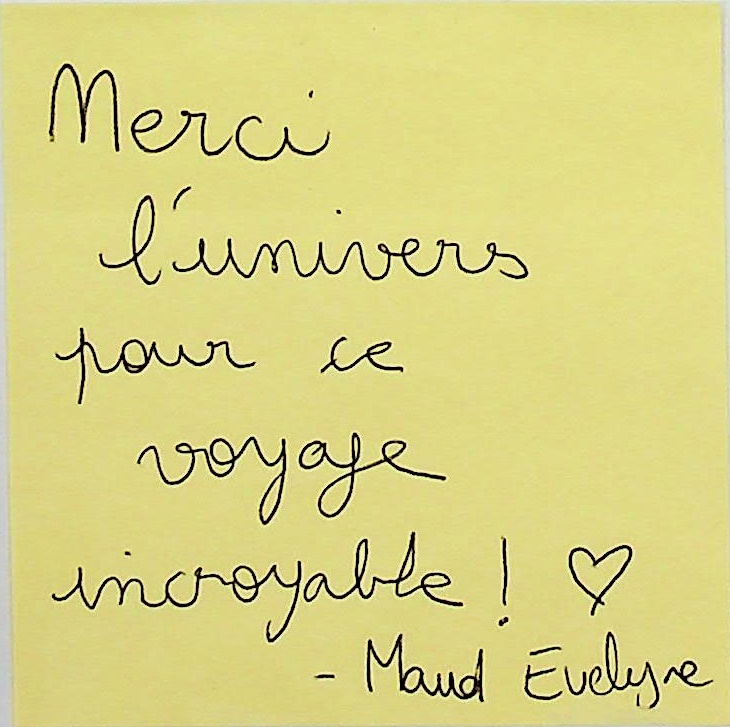 Merci
l'univers
pour ce
voyage
incroyable ! ♡
- Maud Evelyne